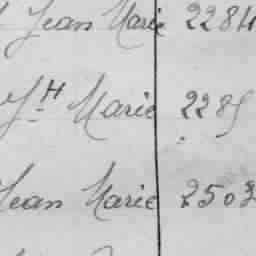 Jean Marie 2284
Jh Marie 2285
Jean Marie 2503